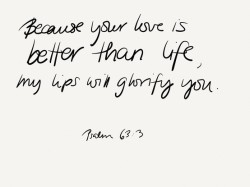 Because your love is
better than life,
my lips will glorify you.
Psalm 63:3